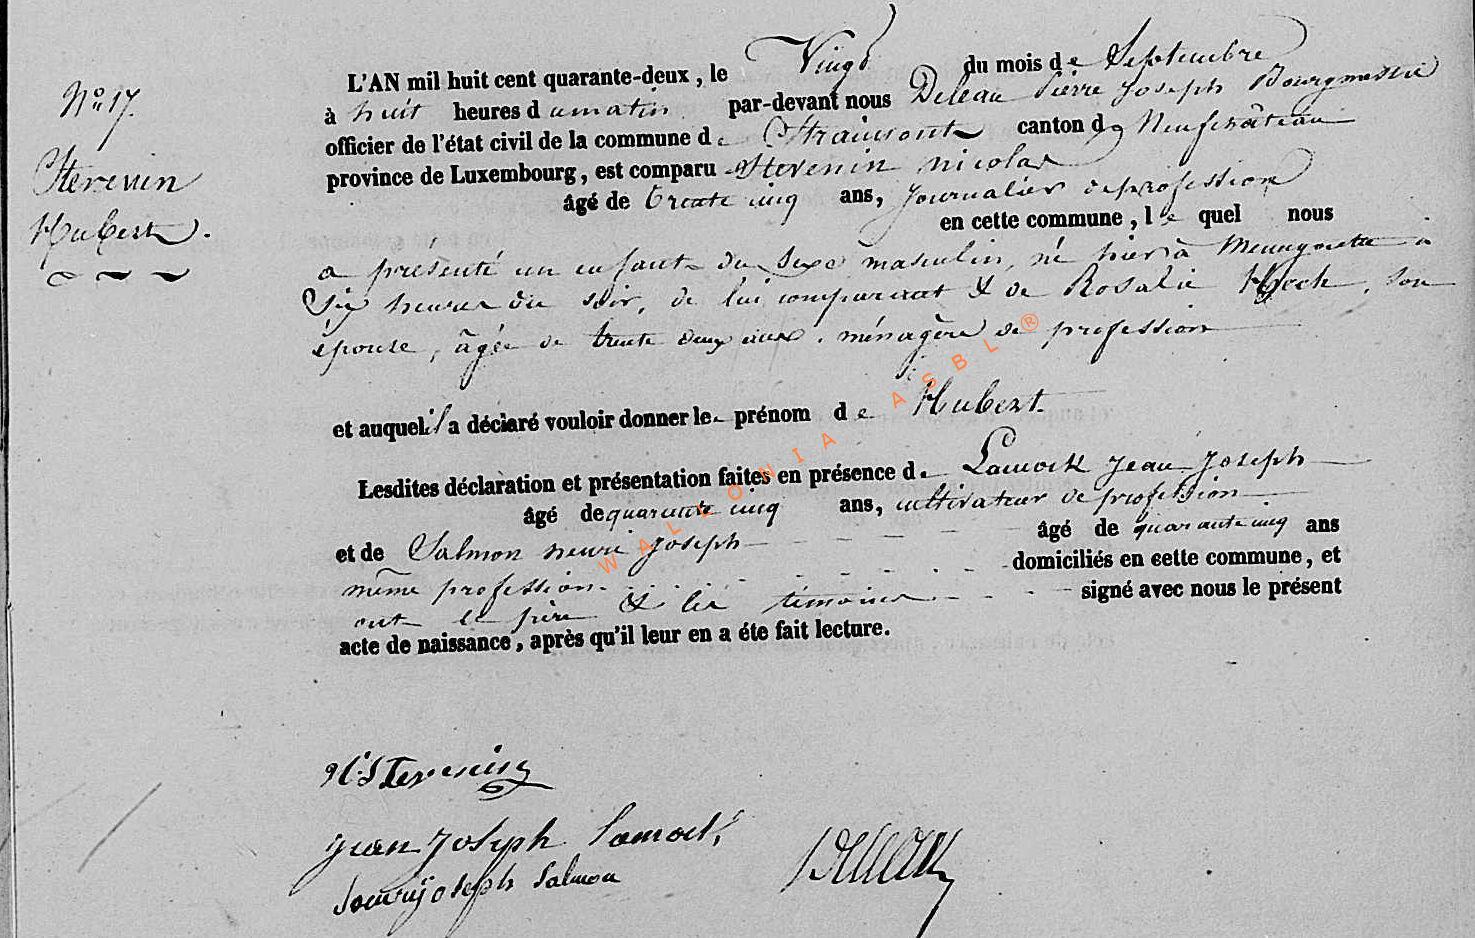 N° 17.
Stevenin
Hubert.
L'AN mil huit cent quarante-deux, le Vingt du mois de Septembre
à huit heures du matin par-devant nous Deleau Pierre Joseph Bourgmestre
officier de l'état civil de la commune de Straimont canton de Neufchâteau
province de Luxembourg, est comparu Stevenin nicolas
âgé de trente cinq ans, Journalier de profession
en cette commune, le quel nous
a présenté un enfant du sexe masculin, né hier à Menugoutte à
Six heures du soir, de lui comparant & de Rosalie Hock, son
épouse, âgée de trente deux ans, ménagère de profession
et auquel il a déclaré vouloir donner le prénom de Hubert
Lesdites déclaration et présentation faites en présence de Lamock Jean Joseph
âgé de quarante cinq ans, cultivateur de profession
et de Salmon henri Joseph âgé de quarante cinq ans
même profession domiciliés en cette commune, et
ont le père & les témoins signé avec nous le présent
acte de naissance, après qu'il leur en a éte fait lecture.
N. Stevenin
Jean Joseph Lamock
henrij oseph Salmon
Deleau
WALLONIA ASBL ®